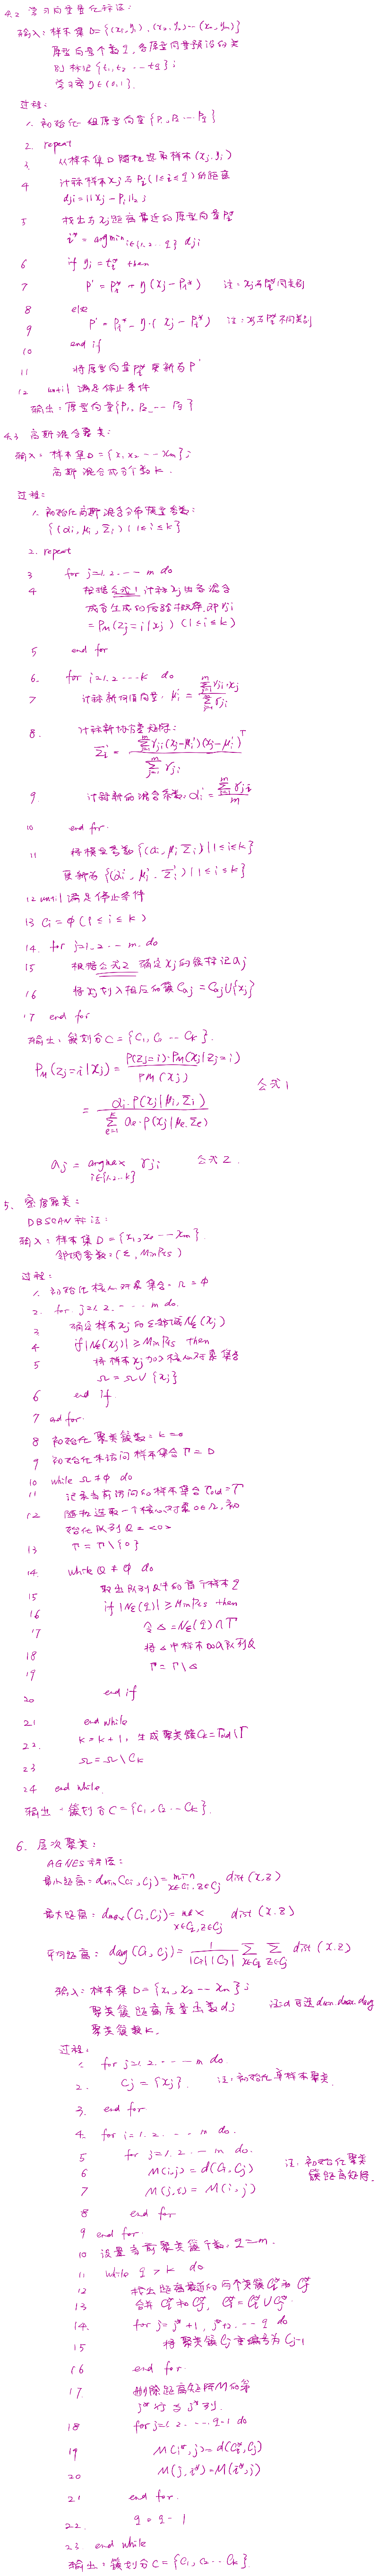 4.2 学习向量量化标法:
输入: 样本集D={(x₁,y₁),(x₂,y₂)…(xm,ym)}
原型向量个数q, 各原型向量预设的类
别标记{t₁,t₂…tq};
学习率η∈(0,1).
过程:
1. 初始化一组原型向量{P₁,P₂…Pq}
2. repeat
3 从样本集D随机选取样本(xj,yj)
4 计算样本xj与Pi(1≤i≤q)的距离
dji=||xj-Pi||₂;
5 找出与xj距离最近的原型向量Pi*
i*=argmin i∈{1,2…q} dji
6 if yj=ti* then
7 P'=Pi*+η(xj-Pi*) 注:xj与Pi*同类别
8 else
9 P'=Pi*-η·(xj-Pi*) 注:xj与Pi*不同类别
10 end if
11 将原型向量Pi*更新为P'
12 until 满足停止条件
输出: 原型向量{P₁,P₂…Pq}
4.3 高斯混合聚类:
输入: 样本集D={x₁,x₂…xm};
高斯混合成分个数k.
过程:
1. 初始化高斯混合分布模型参数:
{(αi,μi,Σi)|1≤i≤k}
2. repeat
3 for j=1,2…m do
4 根据公式1计算xj由各混合
成分生成的后验概率,即γji
=PM(zj=i|xj) (1≤i≤k)
5 end for
6. for i=1,2…k do
7 计算新均值向量: μi'=Σ(j=1..m)γji·xj / Σ(j=1..m)γji
8. 计算新协方差矩阵:
Σi'=Σ(j=1..m)γji(xj-μi')(xj-μi')ᵀ / Σ(j=1..m)γji
9 计算新的混合系数,αi'=Σ(j=1..m)γji / m
10 end for.
11 将模型参数{(αi,μi,Σi)|1≤i≤k}
更新为{(αi',μi',Σi')|1≤i≤k}
12 until 满足停止条件
13 Ci=φ(1≤i≤k)
14. for j=1,2…m. do
15 根据公式2 确定xj的簇标记aj
16 将xj划入相应的簇Caj=Caj∪{xj}
17 end for
输出: 簇划分C={C₁,C₂…Ck}.
PM(zj=i|xj)=P(zj=i)·PM(xj|zj=i) / PM(xj) 公式1
=αi·P(xj|μi,Σi) / Σ(l=1..k)αl·P(xj|μl,Σl)
aj=argmax i∈{1,2…k} γji 公式2.
5. 密度聚类:
DBSCAN标法:
输入: 样本集D={x₁,x₂…xm}
邻域参数:(ε,MinPts)
过程:
1. 初始化核心对象集合. Ω=φ
2. for j=1,2,…m do.
3 确定样本xj的ε邻域Nε(xj)
4 if|Nε(xj)|≥MinPts then
5 将样本xj加入核心对象集合
Ω=Ω∪{xj}
6 end if.
7 end for.
8 初始化聚类簇数:k=0
9 初始化未访问样本集合Γ=D
10 while Ω≠φ do
11 记录当前访问的样本集合Γold=Γ
12 随机选取一个核心对象o∈Ω,初
始化队列Q=<o>
13 Γ=Γ\{o}
14. while Q≠φ do
15 取出队列Q中的首个样本q
16 if|Nε(q)|≥MinPts then
17 令Δ=Nε(q)∩Γ
18 将Δ中样本加入队列Q
19 Γ=Γ\Δ
20 end if
21 end while
22. k=k+1, 生成聚类簇Ck=Γold\Γ
23 Ω=Ω\Ck
24 end while.
输出:簇划分C={C₁,C₂…Ck}.
6. 层次聚类:
AGNES标法:
最小距离:dmin(Ci,Cj)=min x∈Ci,z∈Cj dist(x,z)
最大距离:dmax(Ci,Cj)=max x∈Ci,z∈Cj dist(x,z)
平均距离: davg(Ci,Cj)=1/(|Ci||Cj|) Σx∈Ci Σz∈Cj dist(x,z)
输入:样本集D={x₁,x₂…xm};
聚类簇距离度量函数d; 注:d可选dmin,dmax,davg
聚类簇数k.
过程:
1 for j=1,2…m do
2. Cj={xj}. 注:初始化单样本聚类.
3. end for
4. for i=1,2…m do.
5 for j=1,2…m do.
6 M(i,j)=d(Ci,Cj) 注:初始化聚类
7 M(j,i)=M(i,j) 簇距离矩阵.
8 end for
9 end for.
10 设置当前聚类簇个数,q=m.
11 while q>k do
12 找出距离最近的两个类簇Ci*和Cj*
13 合并Ci*和Cj*, Ci*=Ci*∪Cj*
14. for j=j*+1,j*+2…q do
15 将聚类簇Cj重编号为Cj-1
16 end for.
17 删除距离矩阵M的第
j*行与j*列.
18 for j=1,2…q-1 do
19 M(i*,j)=d(Ci*,Cj)
20 M(j,i*)=M(i*,j)
21 end for.
22. q=q-1
23 end while
输出:簇划分C={C₁,C₂…Ck}.